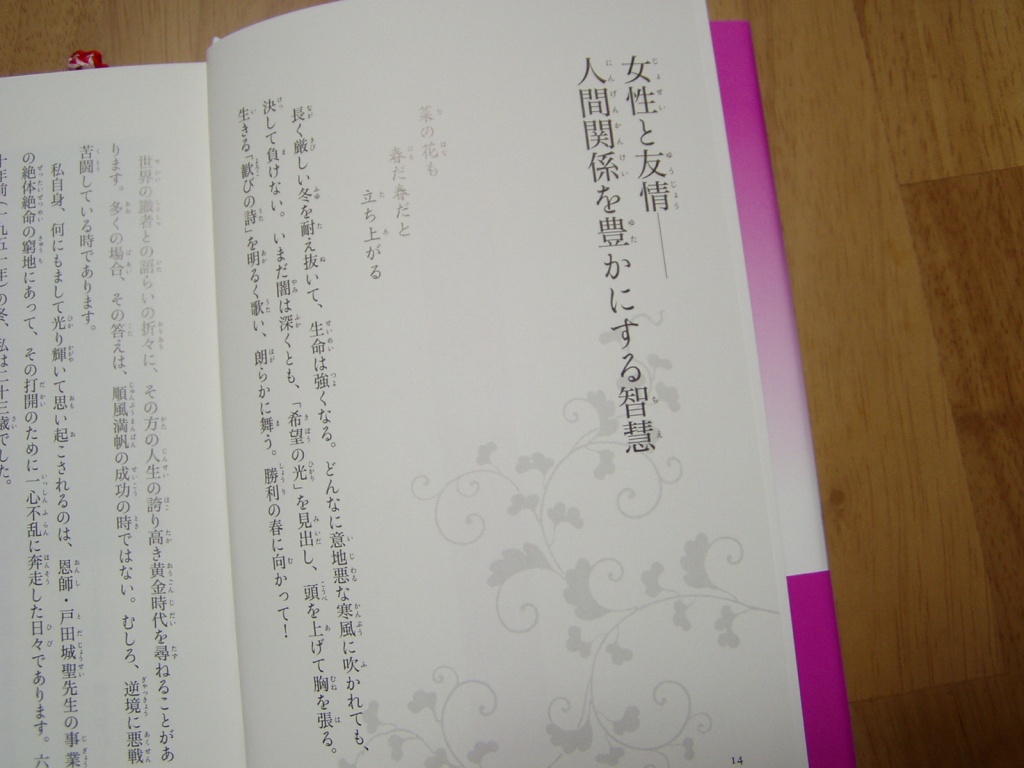 女性と友情――
人間関係を豊かにする智慧
菜の花も
春だ春だと
立ち上がる
長く厳しい冬を耐え抜いて、生命は強くなる。どんなに意地悪な寒風に吹かれても、
決して負けない。いまだ闇は深くとも、「希望の光」を見出し、頭を上げて胸を張る。
生きる「歓びの詩」を明るく歌い、朗らかに舞う。勝利の春に向かって！
14
世界の識者との語らいの折々に、その方の人生の誇り高き黄金時代を尋ねることがあ
ります。多くの場合、その答えは、順風満帆の成功の時ではない。むしろ、逆境に悪戦
苦闘している時であります。
私自身、何にもまして光り輝いて思い起こされるのは、恩師・戸田城聖先生の事業
の絶体絶命の窮地にあって、その打開のために一心不乱に奔走した日々であります。六
十年前（一九五一年）の冬、私は二十三歳でした。